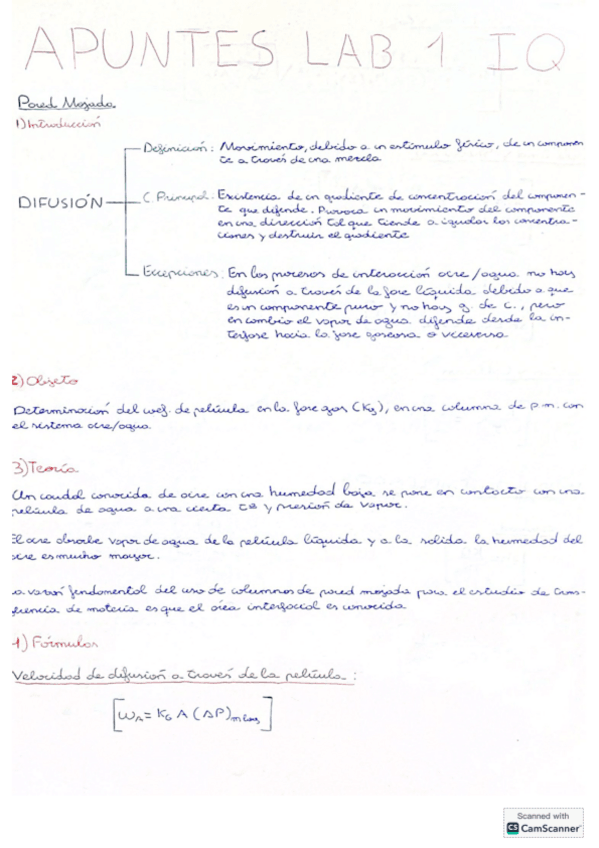 APUNTES LAB 1 IQ
Pared Mojada.
1) Introducción
Definición: Movimiento, debido a un estímulo físico, de un componen-
te a través de una mezcla
DIFUSIÓN
C. Principal: Existencia de un gradiente de concentración del componen-
te que difunde. Provoca un movimiento del componente
en una dirección tal que tiende a igualar las concentra-
ciones y destruir el gradiente
Excepciones: En los procesos de interacción aire/agua no hay
difusión a través de la fase líquida debido a que
es un componente puro y no hay g. de c., pero
en cambio el vapor de agua difunde desde la in-
terfase hacia la fase gaseosa o viceversa
2) Objeto
Determinación del coef. de película en la fase gas (KG), en una columna de p.m. con
el sistema aire/agua.
3) Teoría
Un caudal conocido de aire con una humedad baja se pone en contacto con una
película de agua a una cierta Tª y presión de vapor.
El aire absorbe vapor de agua de la película líquida y a la salida la humedad del
aire es mucho mayor.
La razón fundamental del uso de columnas de pared mojada para el estudio de trans-
ferencia de materia es que el área interfacial es conocida
4) Fórmulas
Velocidad de difusión a través de la película:
[WA = KG A (ΔP)m log]
Scanned with
CS CamScanner